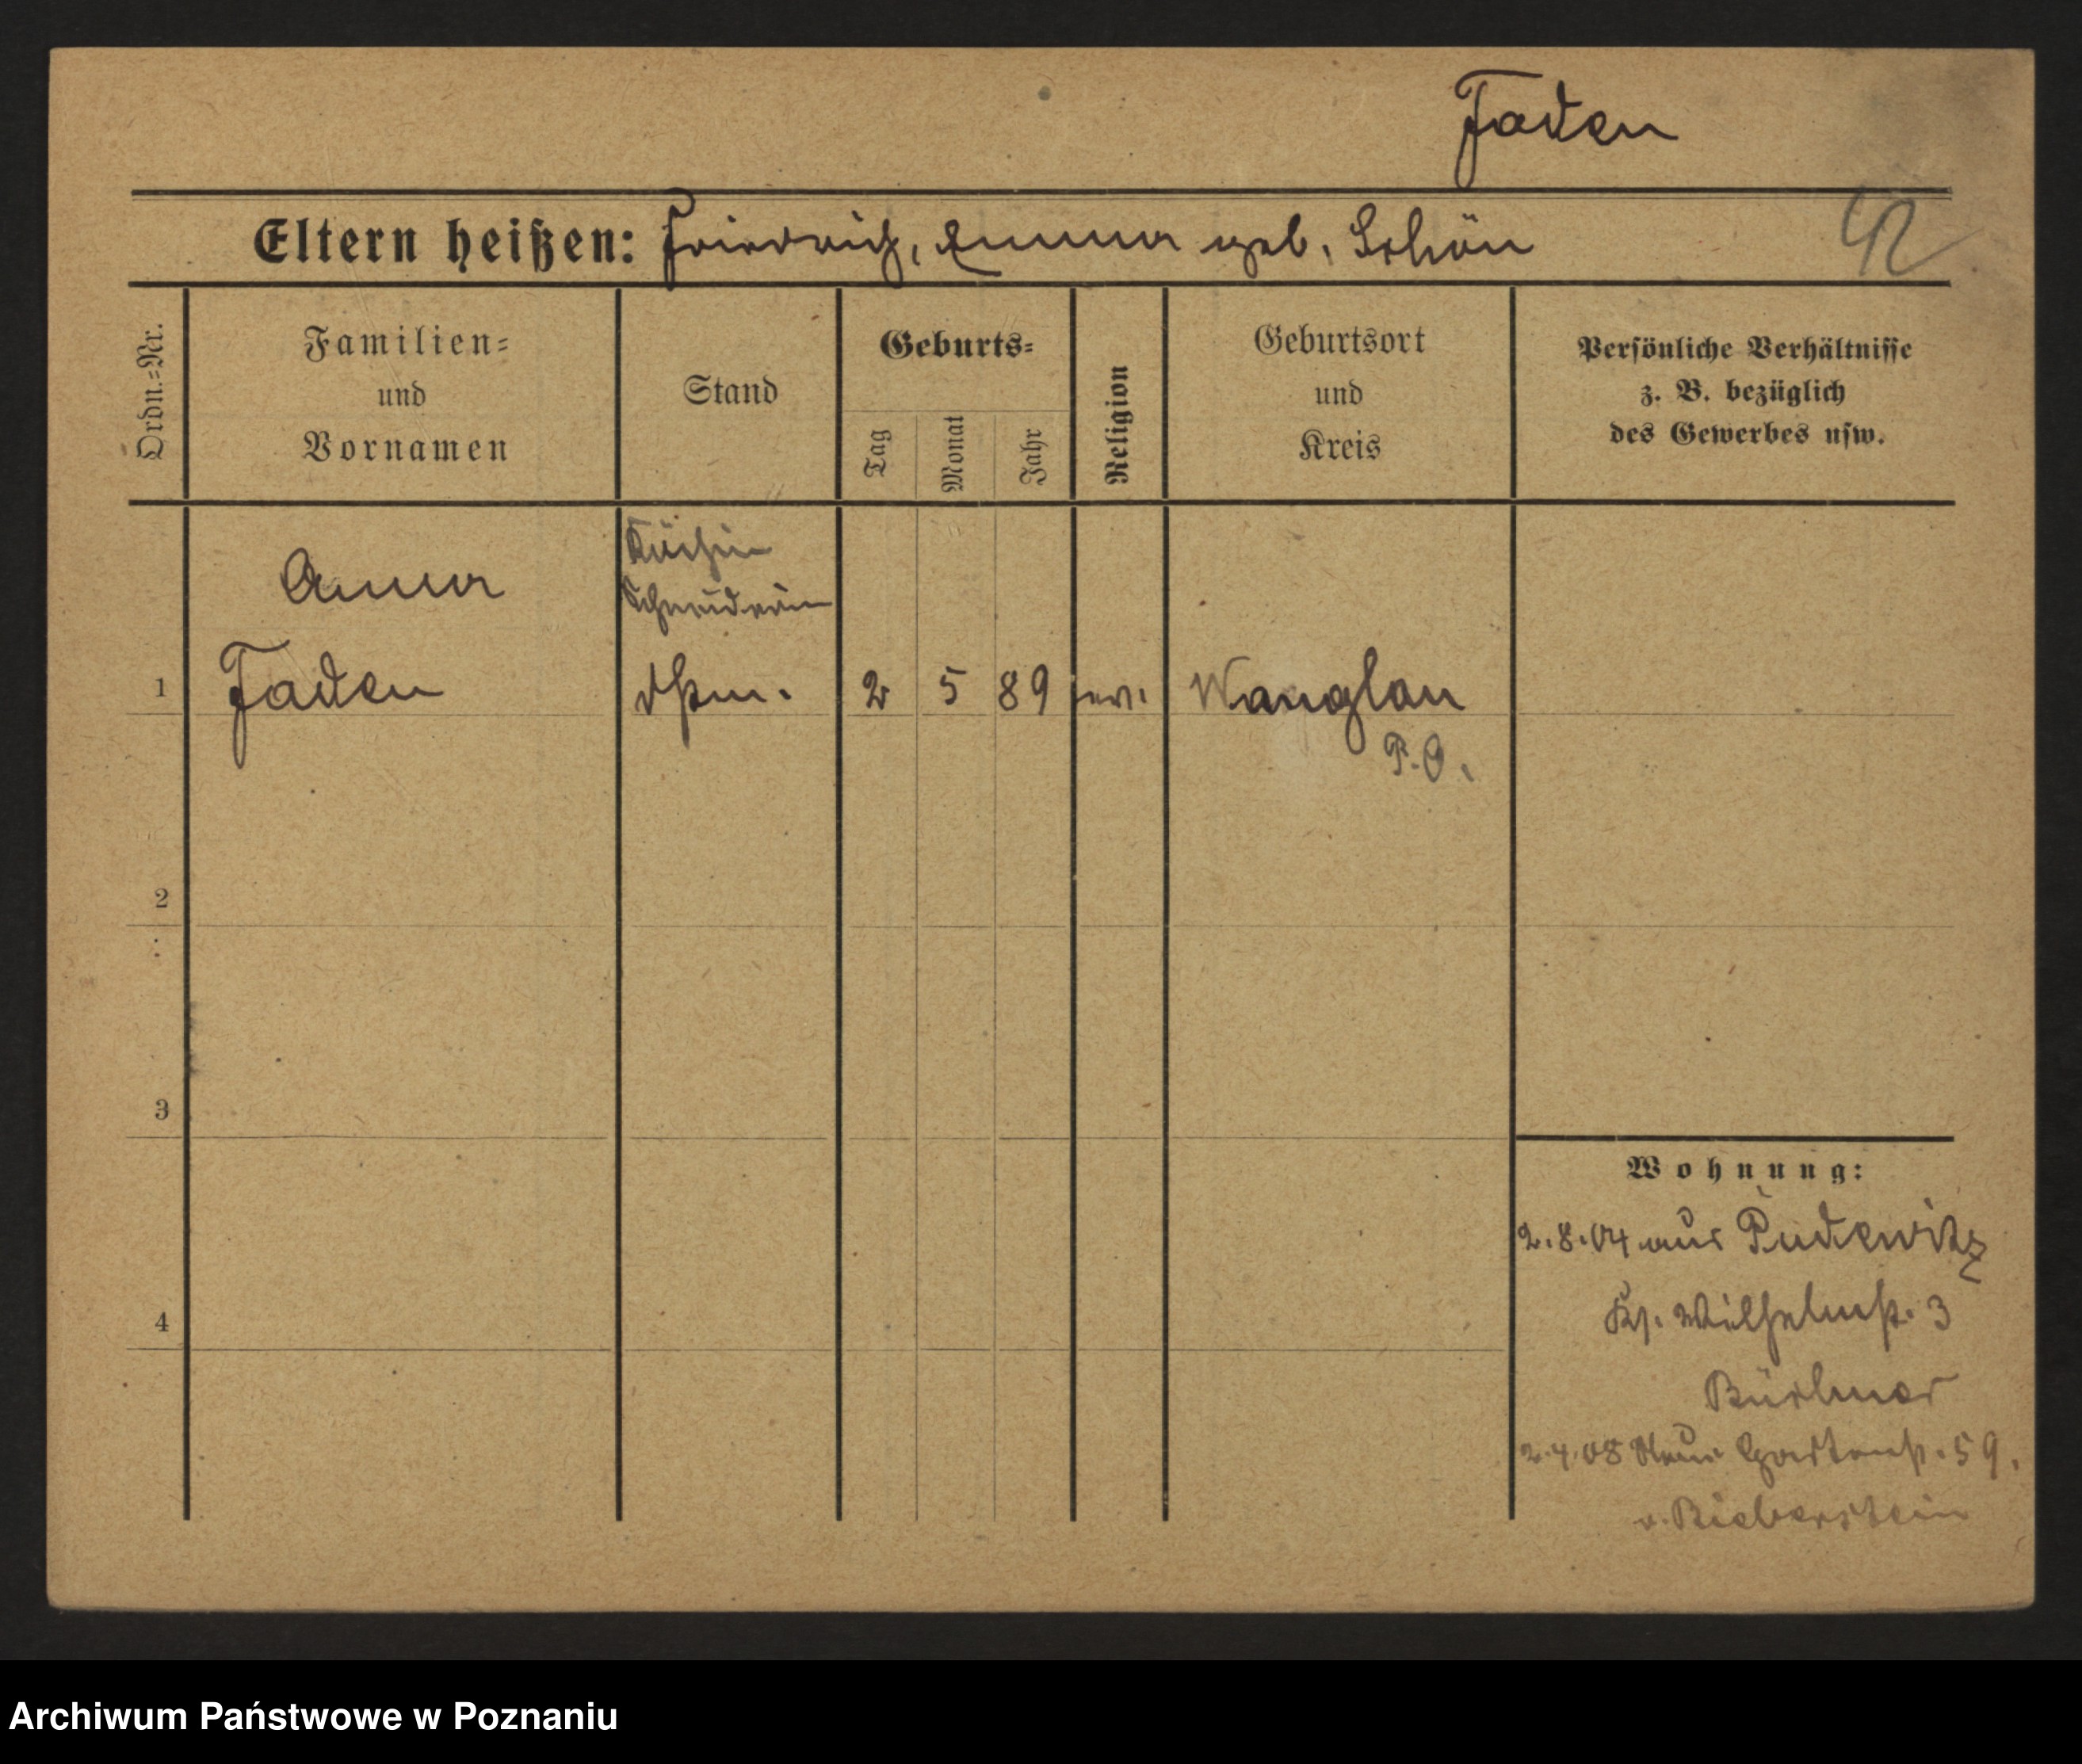 Faden
Eltern heißen: Friedrich, Emma geb. Schön
42
Ordn.=Nr.
Familien=
und
Vornamen
Stand
Geburts=
Tag
Monat
Jahr
Religion
Geburtsort
und
Kreis
Persönliche Verhältnisse
z. B. bezüglich
des Gewerbes usw.
Köchin
Anna
Schneiderin
1 Faden 2 5 89 ev. Wanglau
P. O.
2
3
4
Wohnung:
2.8.04 aus Pudewitz
Kl. Wilhelmst. 3
2.4.08 Neue Gartenst. 59.
v. Bieberstein
Archiwum Państwowe w Poznaniu